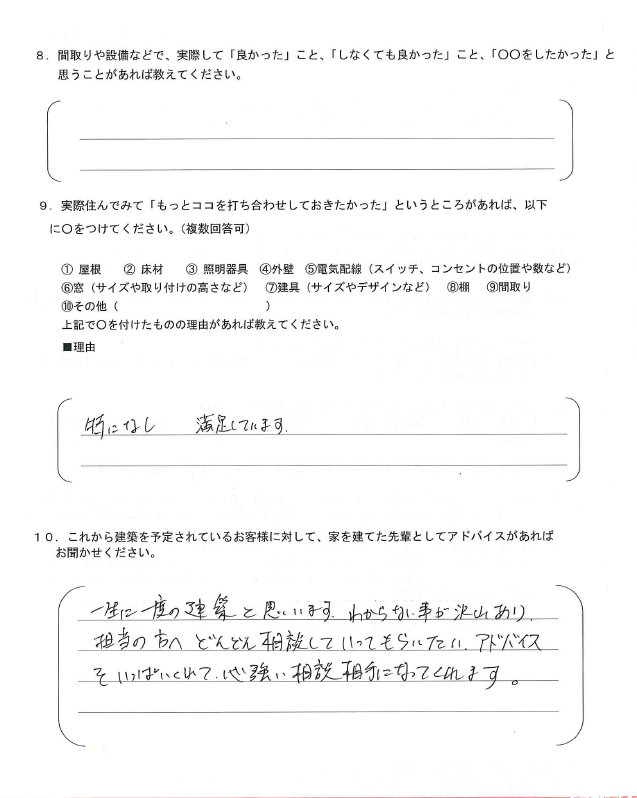 8．間取りや設備などで、実際して「良かった」こと、「しなくても良かった」こと、「〇〇をしたかった」と
思うことがあれば教えてください。
9．実際住んでみて「もっとココを打ち合わせしておきたかった」というところがあれば、以下
に〇をつけてください。（複数回答可）
① 屋根　② 床材　③ 照明器具　④外壁　⑤電気配線（スイッチ、コンセントの位置や数など）
⑥窓（サイズや取り付けの高さなど）　⑦建具（サイズやデザインなど）　⑧棚　⑨間取り
⑩その他（　　　　　　　　　　）
上記で〇を付けたものの理由があれば教えてください。
■理由
特になし　満足しています.
10．これから建築を予定されているお客様に対して、家を建てた先輩としてアドバイスがあれば
お聞かせください。
一生に一度の建築と思いいます. わからない事が沢山あり.
担当の方へ どんどん相談していってもらいたい. アドバイス
そいっぱいくれて、心強い相談相手になってくれます。